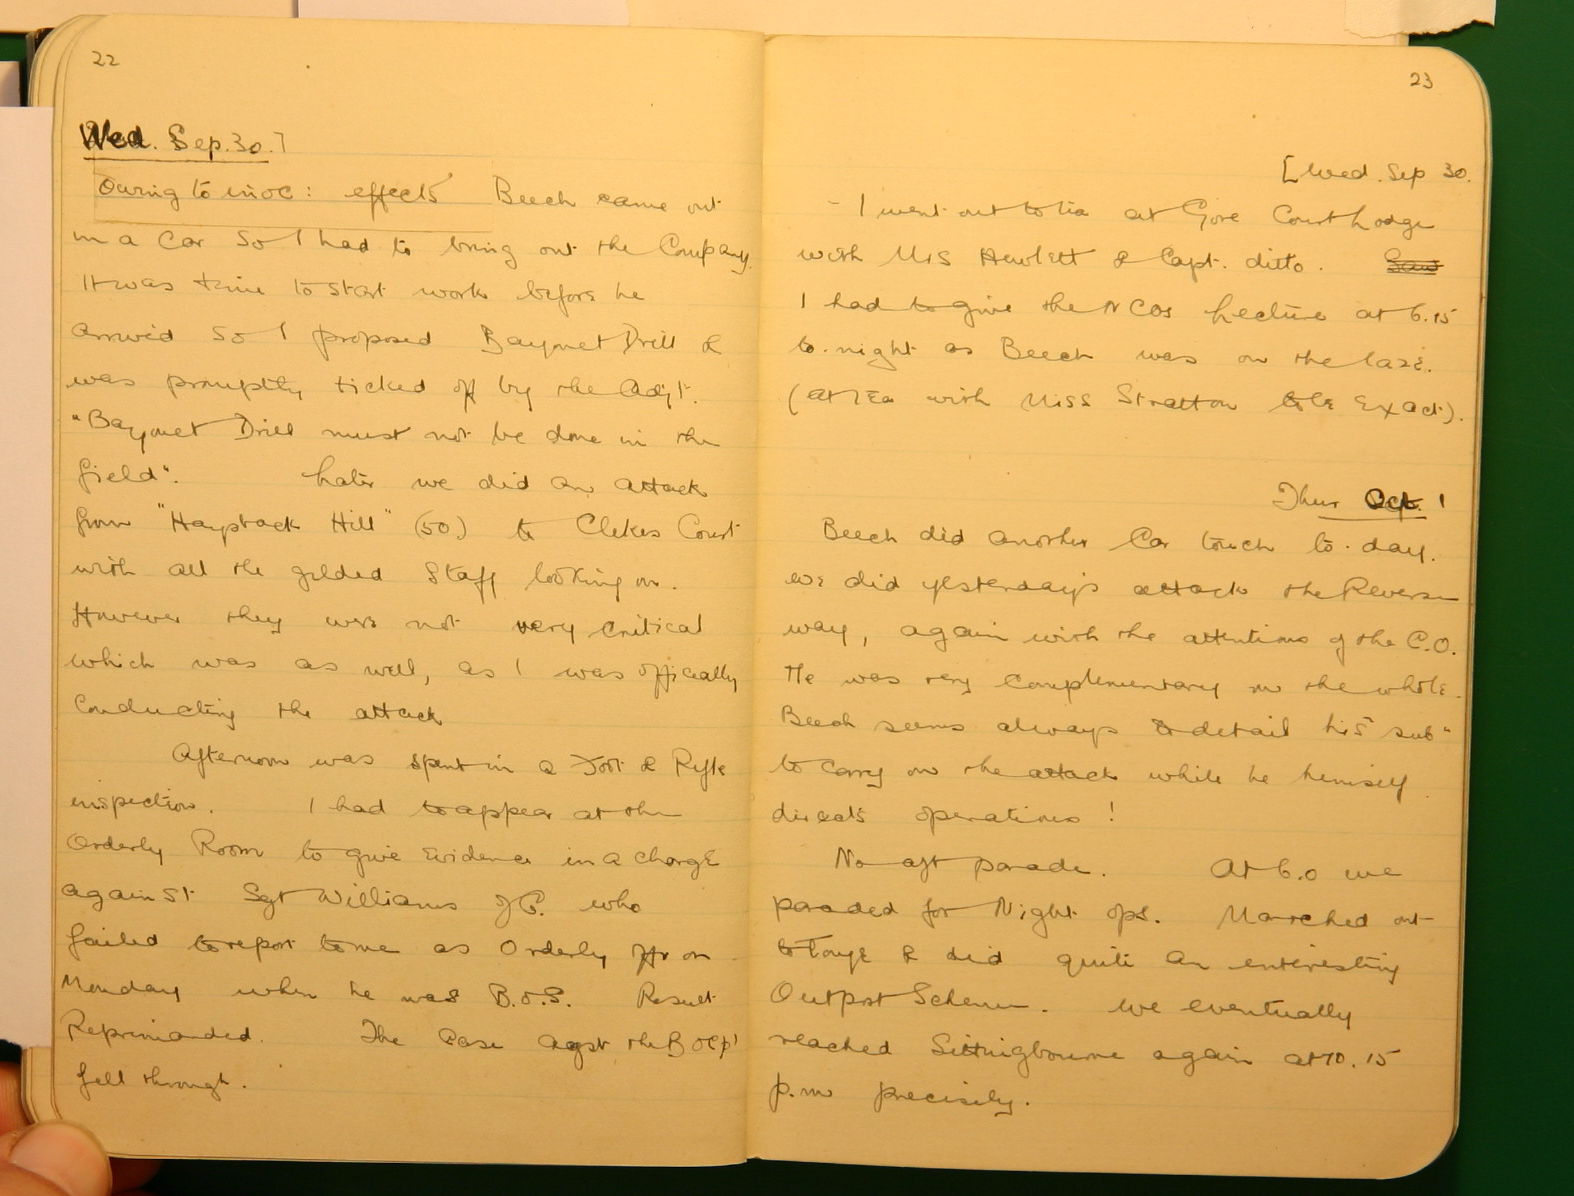 22
Wed. Sep. 30.]
Owing to inoc: effects Beech came out
in a Car so I had to bring out the Company.
It was time to start work before he
arrived so I proposed Bayonet Drill &
was promptly ticked off by the Adjt.
"Bayonet Drill must not be done in the
field". Later we did an attack
from "Haystack Hill" (50.) to Clekes Court
with all the gilded Staff looking on.
However they were not very critical
which was as well, as I was officially
conducting the attack
Afternoon was spent in a Foot & Rifle
inspection. I had to appear at the
Orderly Room to give Evidence in a charge
against Sgt Williams J.C. who
failed to report to me as Orderly Offr on
Monday when he was B.O.S. Result
Reprimanded. The Case agst the B OCpl
fell through.
23
[Wed. Sep 30.
- I went out to tea at Gore Court Lodge
with Mrs Hewlett & Capt. ditto. Saw
I had to give the NCOs Lecture at 6.15
to-night as Beech was on the laze.
(at Tea with Miss Stratton to be Exact).
Thur Oct. 1
Beech did another Car touch to-day.
We did yesterday's attack the Reverse
way, again with the attentions of the C.O.
He was very Complimentary on the whole.
Beech seems always to detail his "sub"
to carry on the attack while he himself
directs operations!
No aft parade. At 6.0 we
paraded for Night Ops. Marched out
to Tonge & did quite an interesting
Outpost Scheme. We eventually
reached Sittingbourne again at 10.15
p.m precisely.